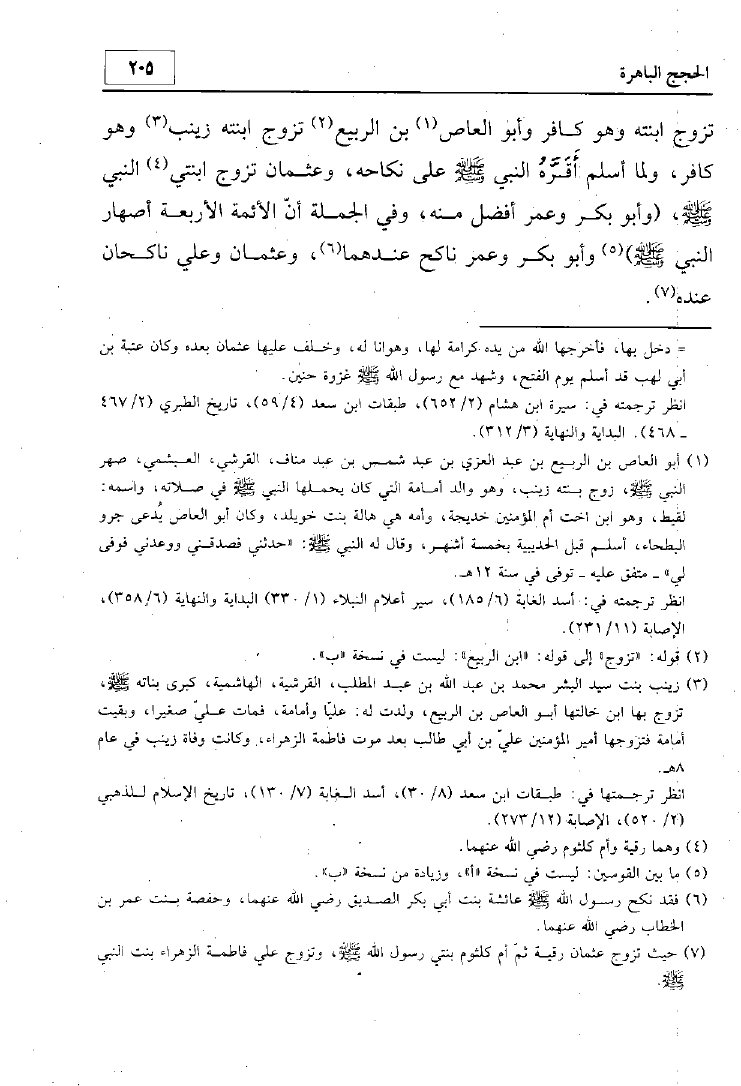 الحجج الباهرة
٢٠٥
تزوج ابنته وهو كـافر وأبو العاص(١) بن الربيع(٢) تزوج ابنته زينب(٣) وهو
كافر، ولما أسلم أَقَـرَّهُ النبي ﷺ على نكاحه، وعثـمان تزوج ابنتي(٤) النبي
ﷺ، (وأبو بكـر وعمر أفضل منـه، وفي الجملـة أنّ الأئمة الأربعـة أصهار
النبي ﷺ)(٥) وأبو بكـر وعمر ناكح عندهما(٦)، وعثمـان وعلي ناكـحان
عنده(٧).
= دخل بها، فأخرجها الله من يده كرامة لها، وهوانا له، وخـلف عليها عثمان بعده وكان عتبة بن
أبي لهب قد أسلم يوم الفتح، وشهد مع رسول الله ﷺ غزوة حنين.
انظر ترجمته في: سيرة ابن هشام (٦٥٢/٢)، طبقات ابن سعد (٥٩/٤)، تاريخ الطبري (٤٦٧/٢
ـ ٤٦٨). البداية والنهاية (٣١٢/٣).
(١) أبو العاص بن الربيع بن عبد العزي بن عبد شمـس بن عبد مناف، القرشي، العبشمي، صهر
النبي ﷺ، زوج بنته زينب، وهو والد أمامة التي كان يحملها النبي ﷺ في صلاته، واسمه:
لقيط، وهو ابن اخت أم المؤمنين خديجة، وأمه هي هالة بنت خويلد، وكان أبو العاص يُدعى جرو
البطحاء، أسلم قبل الحديبية بخمسة أشهر، وقال له النبي ﷺ: «حدثني فصدقني ووعدني فوفى
لي» ـ متفق عليه ـ توفى في سنة ١٢هـ.
انظر ترجمته في: أسد الغابة (١٨٥/٦)، سير أعلام النبلاء (٣٣٠/١) البداية والنهاية (٣٥٨/٦)،
الإصابة (٢٣١/١١).
(٢) قوله: «تزوج» إلى قوله: «ابن الربيع»: ليست في نسخة «ب».
(٣) زينب بنت سيد البشر محمد بن عبد الله بن عبـد المطلب، القرشية، الهاشمية، كبرى بناته ﷺ،
تزوج بها ابن خالتها أبـو العاص بن الربيع، ولدت له: عليّا وأمامة، فمات عليّ صغيرا، وبقيت
أمامة فتزوجها أمير المؤمنين عليّ بن أبي طالب بعد موت فاطمة الزهراء، وكانت وفاة زينب في عام
٨هـ.
انظر ترجـمتها في: طبقات ابن سعد (٣٠/٨)، أسد الـغابة (١٣٠/٧)، تاريخ الإسلام لـلذهبي
(٥٢٠/٢)، الإصابة (٢٧٣/١٢).
(٤) وهما رقية وأم كلثوم رضي الله عنهما.
(٥) ما بين القوسين: ليست في نسخة «أ»، وزيادة من نسخة «ب».
(٦) فقد نكح رسـول الله ﷺ عائشة بنت أبي بكر الصديق رضي الله عنهما، وحفصة بـنت عمر بن
الخطاب رضي الله عنهما.
(٧) حيث تزوج عثمان رقيـة ثمّ أم كلثوم بنتي رسول الله ﷺ، وتزوج علي فاطمـة الزهراء بنت النبي
ﷺ.